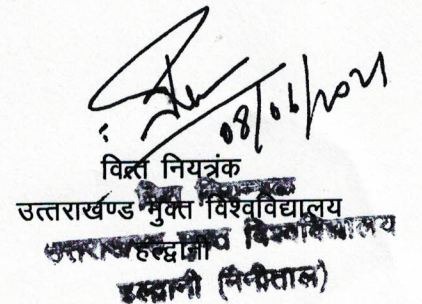 08/06/2021
वित्त नियत्रंक
उत्तराखण्ड मुक्त विश्वविद्यालय
हल्द्वानी
विश्वविद्यालय
हल्द्वानी (नैनीताल)